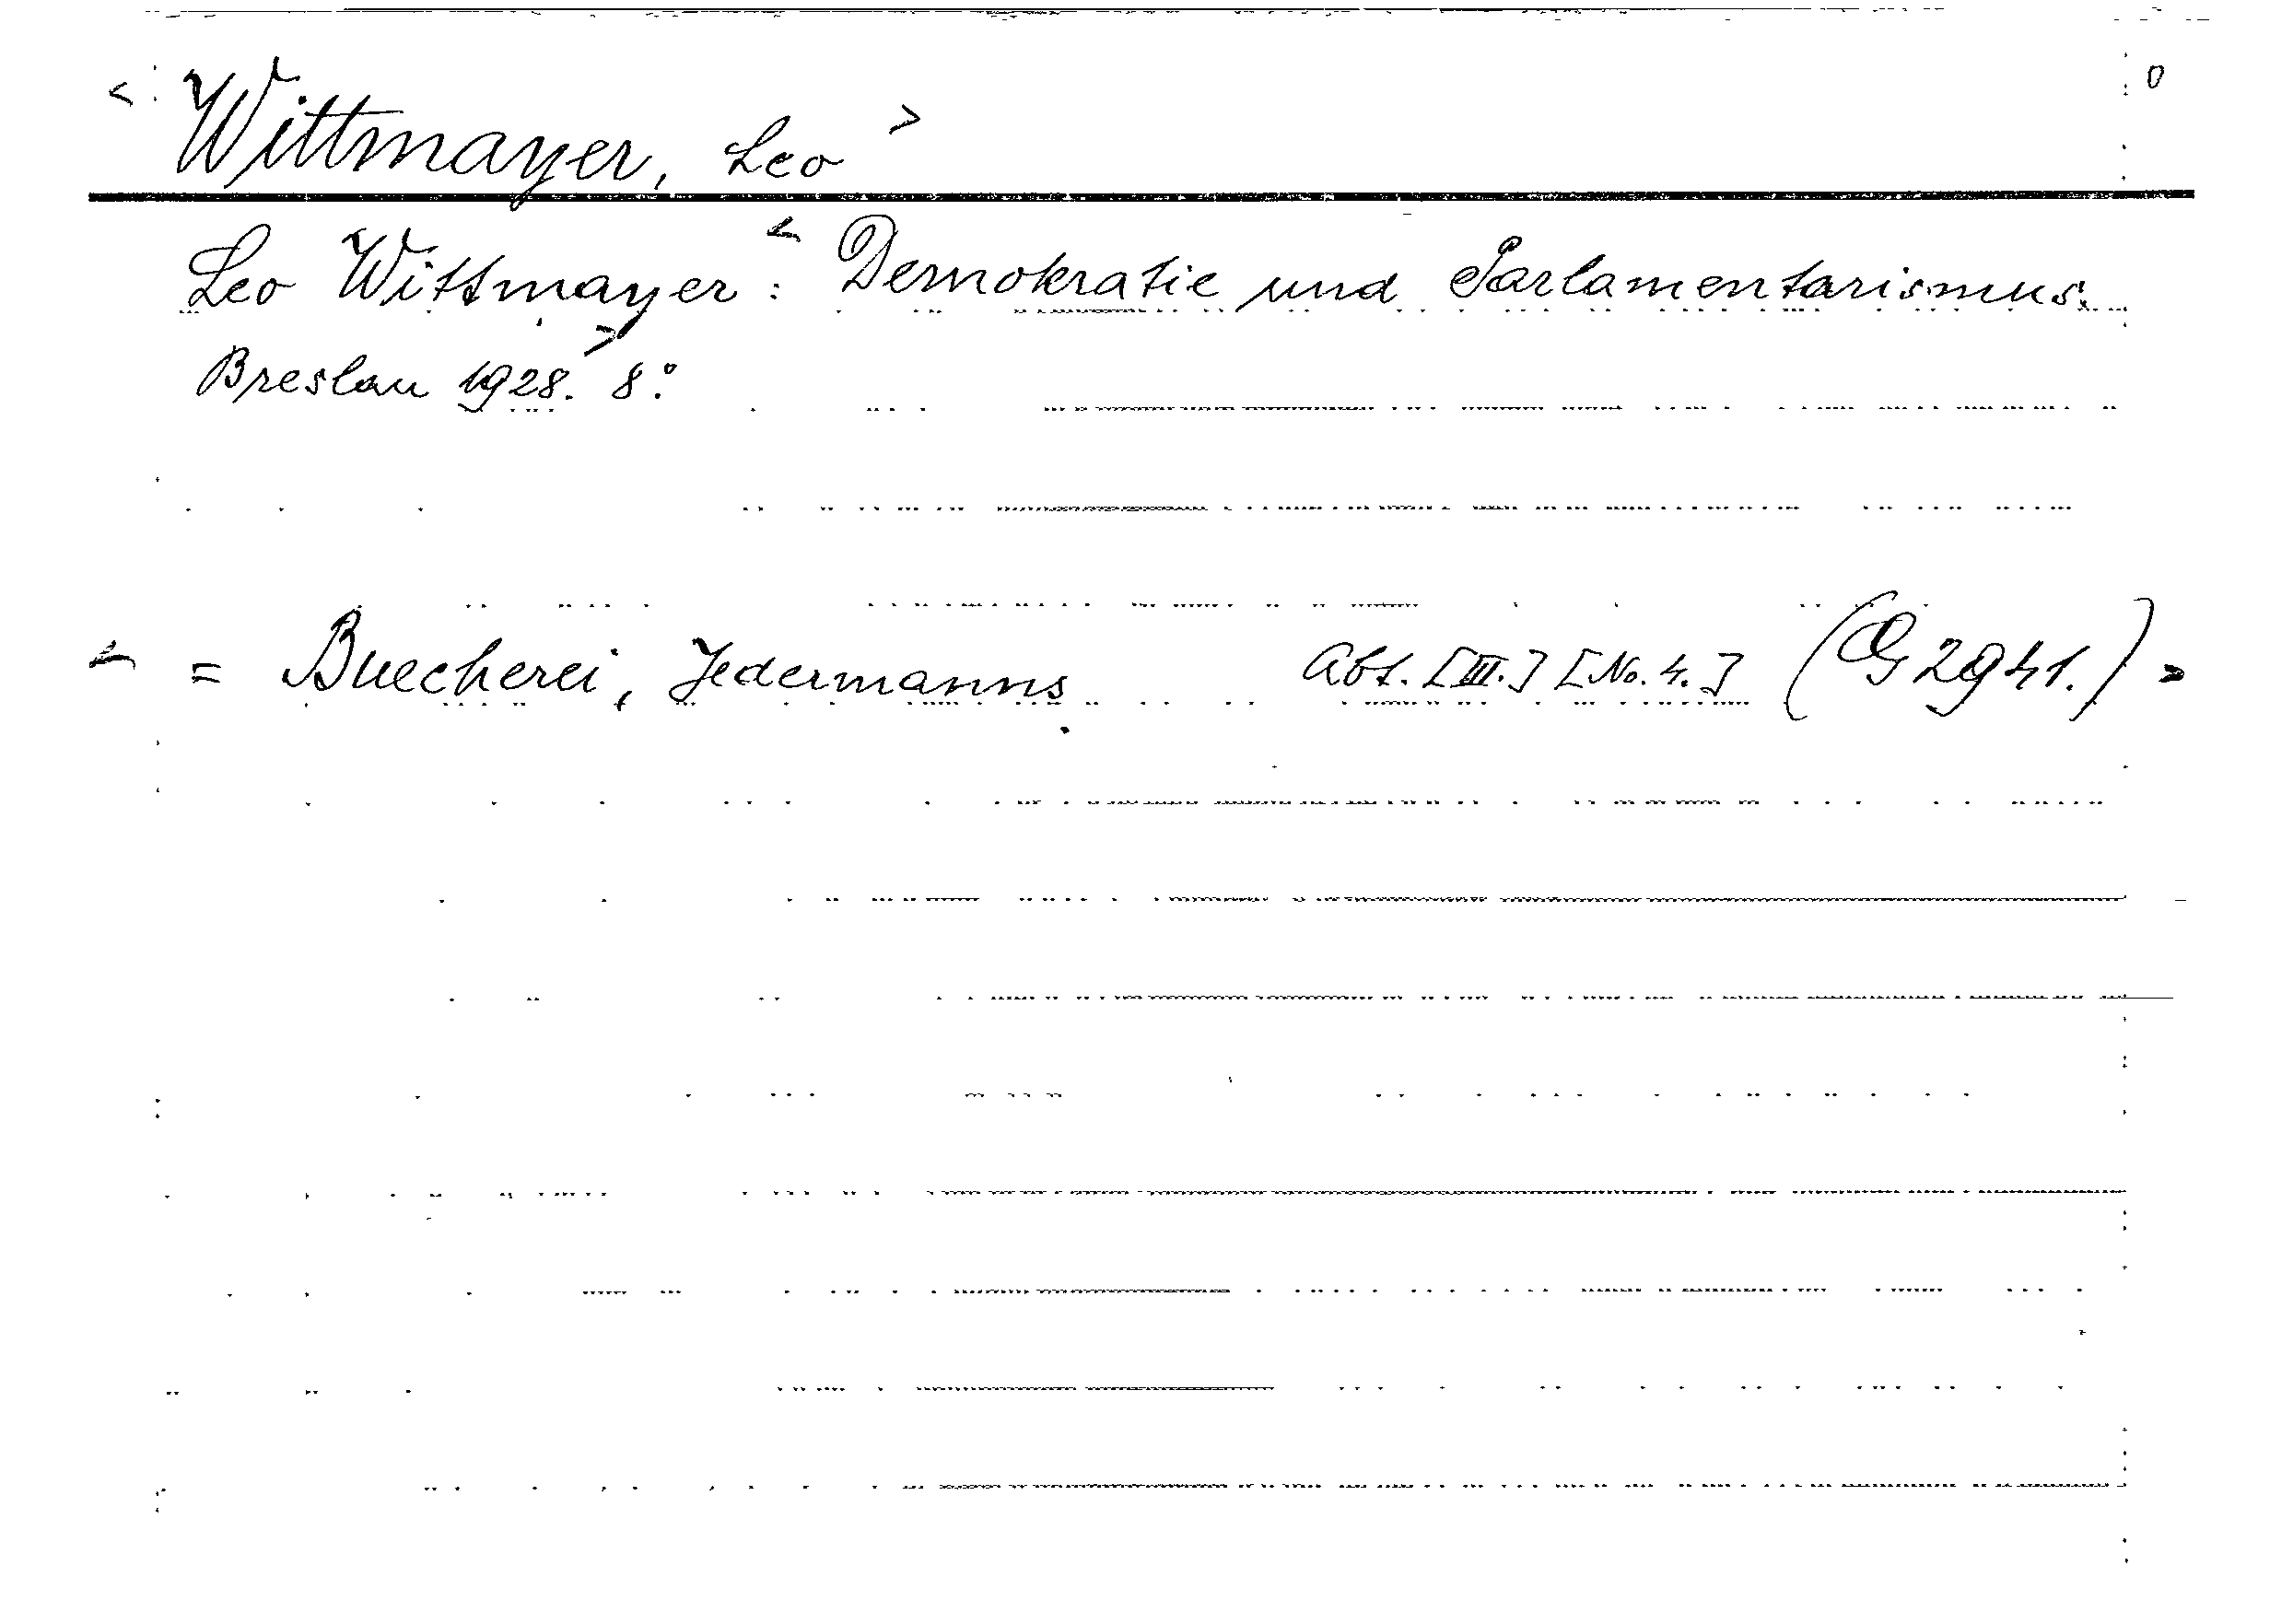 < Wittmayer, Leo > 0
Leo Wittmayer: < Demokratie und Parlamentarismus.
Breslau 1928. > 8°.
< = Buecherei, Jedermanns. Abt. [III.] [No. 4.] (G 2941.) >